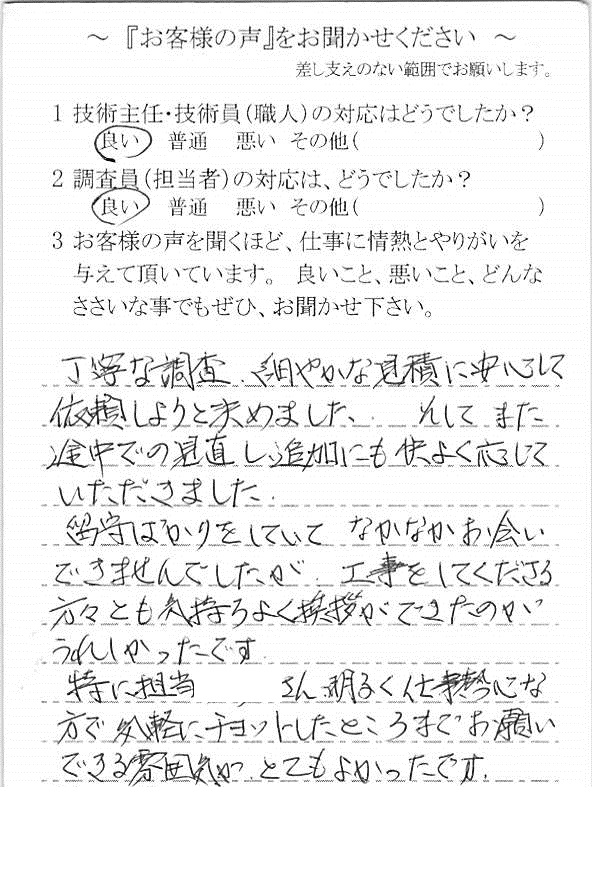 ～『お客様の声』をお聞かせください～
差し支えのない範囲でお願いします。
1 技術主任・技術員(職人)の対応はどうでしたか？
良い 普通 悪い その他( )
2 調査員(担当者)の対応は、どうでしたか？
良い 普通 悪い その他( )
3 お客様の声を聞くほど、仕事に情熱とやりがいを
与えて頂いています。 良いこと、悪いこと、どんな
ささいな事でもぜひ、お聞かせ下さい。
丁寧な調査、細やかな見積に安心して
依頼しようと決めました、 そして また
途中での見直し、追加にも快よく応じて
いただきました.
留守ばかりをしていて なかなかお会い
できませんでしたが、工事をしてくださる
方々とも気持ちよく挨拶ができたのが
うれしかったです.
特に担当 さん、明るく仕事熱心な
方で気軽にチョットしたところまでお願い
できる雰囲気が、とてもよかったです.